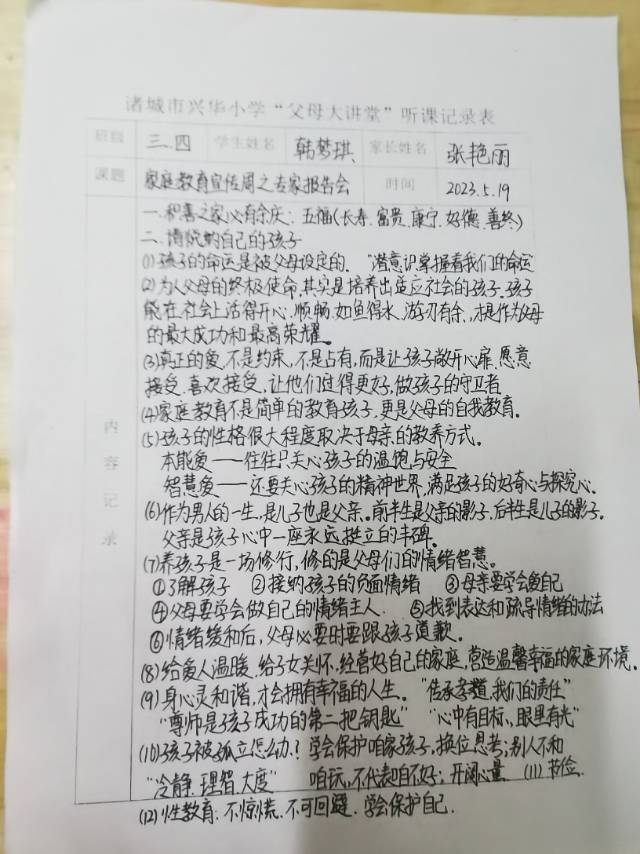 诸城市兴华小学“父母大讲堂”听课记录表
班级 三.四 学生姓名 韩梦琪 家长姓名 张艳丽
课题 家庭教育宣传周之专家报告会 时间 2023.5.19
内容记录
一.积善之家必有余庆：五福(长寿.富贵.康宁.好德.善终)
二.情绪纳自己的孩子
(1)孩子的命运是被父母设定的.“潜意识掌握着我们的命运”
(2)为人父母的终极使命,其实是培养出适应社会的孩子.孩子
能在社会上活得开心.顺畅.如鱼得水.游刃有余,才是作为父母
的最大成功和最高荣耀。
(3)真正的爱,不是约束,不是占有,而是让孩子敞开心扉.愿意
接受.喜欢接受,让他们过得更好,做孩子的守卫者
(4)家庭教育不是简单的教育孩子,更是父母的自我教育。
(5)孩子的性格很大程度取决于母亲的教养方式。
本能爱——往往只关心孩子的温饱与安全
智慧爱——还要关心孩子的精神世界,满足孩子的好奇心与探究心.
(6)作为男人的一生,是儿子也是父亲.前半生是父亲的影子,后半生是儿子的影子.
父亲是孩子心中一座永远挺立的丰碑.
(7)养孩子是一场修行,修的是父母们的情绪智慧。
①了解孩子 ②接纳孩子的负面情绪 ③母亲要学会爱自己
④父母要学会做自己的情绪主人. ⑤找到表达和疏导情绪的办法
⑥情绪缓和后,父母必要时要跟孩子道歉.
(8)给爱人温暖.给子女关怀.经营好自己的家庭,营造温馨幸福的家庭环境.
(9)身心灵和谐,才会拥有幸福的人生。“传承孝道,我们的责任”
“尊师是孩子成功的第二把钥匙” “心中有目标,眼里有光”
(10)孩子被孤立怎么办?学会保护咱家孩子,换位思考;别人不和
“冷静.理智.大度” 咱玩,不代表咱不好;开阔心量 (11)节俭.
(12)性教育:不惊慌.不可回避.学会保护自己.